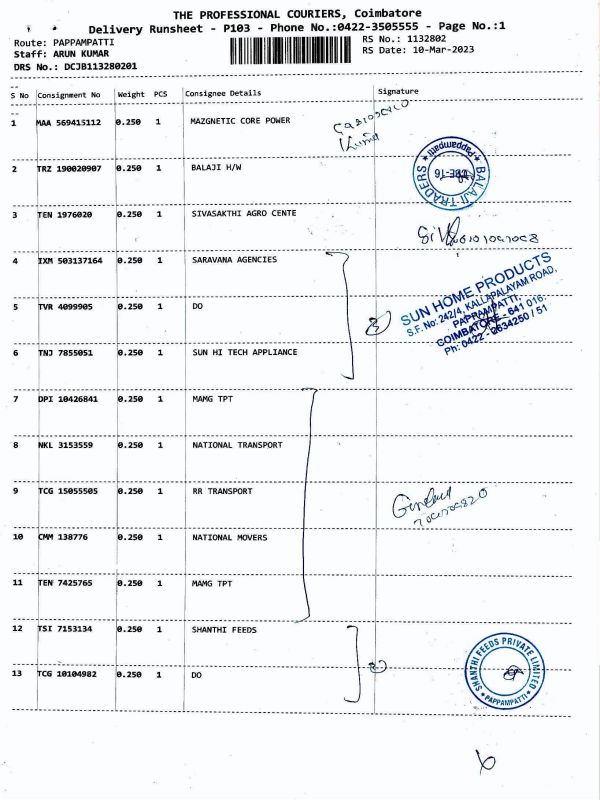 THE PROFESSIONAL COURIERS, Coimbatore
Delivery Runsheet - P103 - Phone No.:0422-3505555 - Page No.:1
Route: PAPPAMPATTI
RS No.: 1132802
Staff: ARUN KUMAR
RS Date: 10-Mar-2023
DRS No.: DCJB113280201
S No Consignment No Weight PCS Consignee Details Signature
1 MAA 569415112 0.250 1 MAZGNETIC CORE POWER
2 TRZ 190020907 0.250 1 BALAJI H/W
BALAJI TRADERS
Pappampatti
3 TEN 1976020 0.250 1 SIVASAKTHI AGRO CENTE
4 IXM 503137164 0.250 1 SARAVANA AGENCIES
5 TVR 4099905 0.250 1 DO
3
SUN HOME PRODUCTS
S.F. No. 242/4, KALLAPALAYAM ROAD,
PAPPAMPATTI,
COIMBATORE - 641 016.
Ph: 0422 - 2634250 / 51
6 TNJ 7855051 0.250 1 SUN HI TECH APPLIANCE
7 DPI 10426841 0.250 1 MAMG TPT
8 NKL 3153559 0.250 1 NATIONAL TRANSPORT
9 TCG 15055505 0.250 1 RR TRANSPORT
10 CMM 138776 0.250 1 NATIONAL MOVERS
11 TEN 7425765 0.250 1 MAMG TPT
12 TSI 7153134 0.250 1 SHANTHI FEEDS
2
SHANTHI FEEDS PRIVATE LIMITED
PAPPAMPATTI
13 TCG 10104982 0.250 1 DO